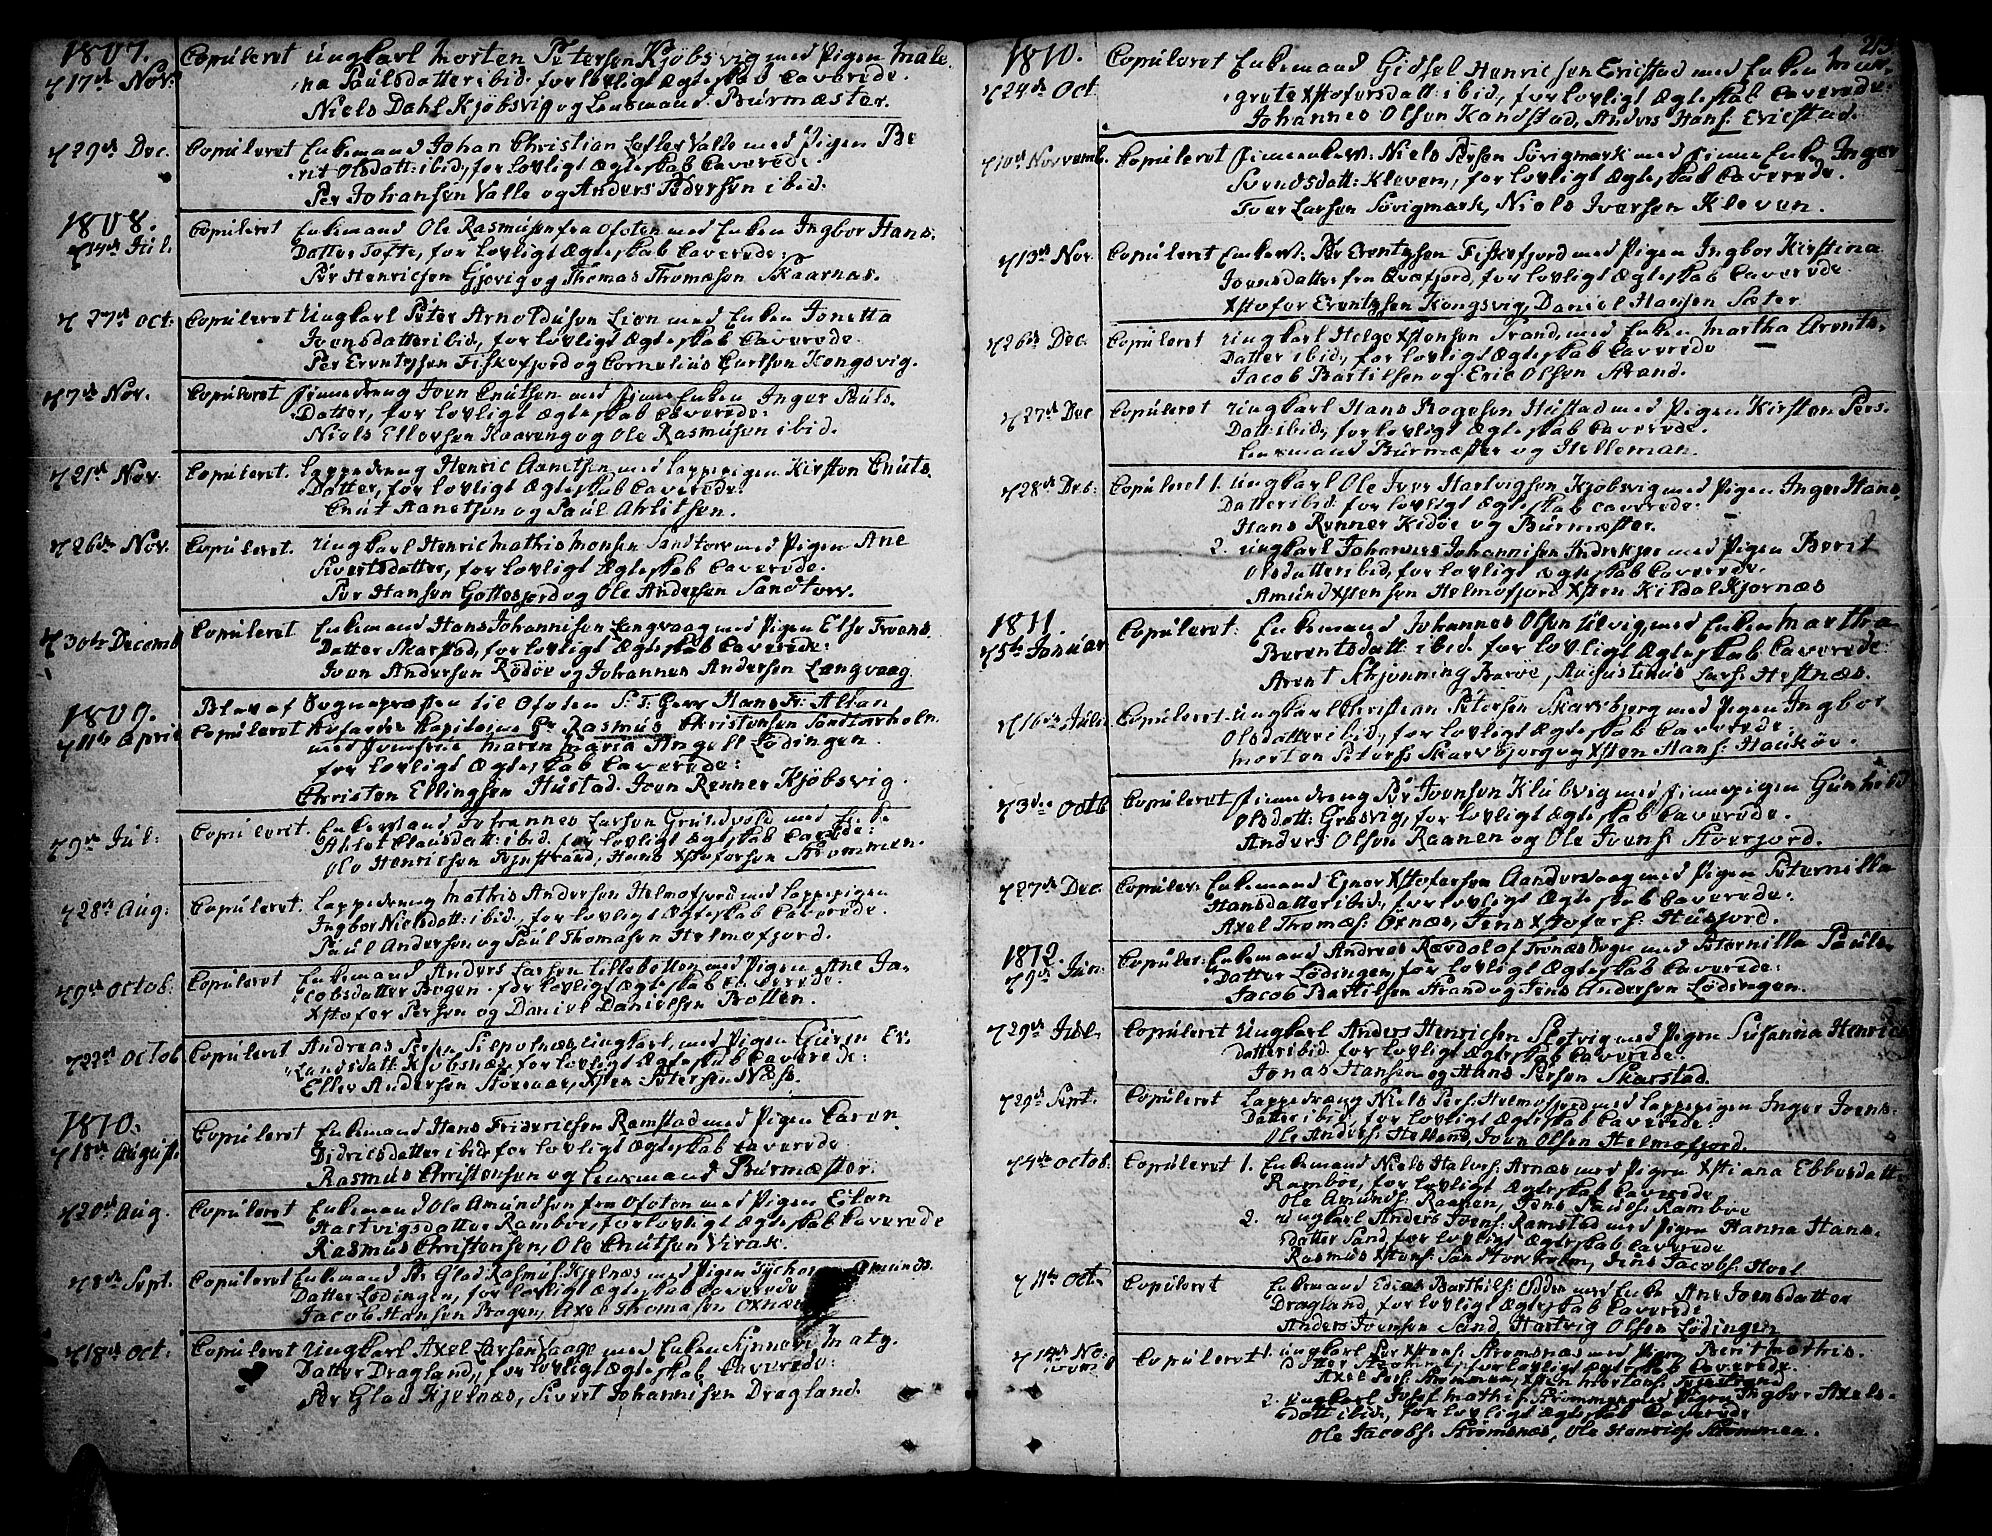 1807.
d 17de Nov: Copuleret Ungkarl Morten Petersen Kjøbsvig med Pigen Male
na Paulsdatter ibid. for lovligt Ægteskab Caverede.
Niels Dahl Kjøbsvig og Lensmand Burmæster.
d 29de Dec. Copuleret Enkemand Johan Christian Valle med Pigen Be
rit Olsdatt: ibid, for lovligt Ægteskab Caverede.
Per Johansen Valle og Anders Pedersen ibid.
1808.
d 14de Jul. Copuleret Enkemand Ole Rasmusen fra Ofoten med Enken Ingbor Hans-
Datter Tofte, for lovligt Ægteskab Caverede:
Per Henricsen Gjovig og Thomas Thomæsen Skaarnæs.
d 27de Oct: Copuleret Ungkarl Peter Arnoldusen Lien med Enken Jonetta
Joensdatter ibid, for lovligt Ægteskab Caverede.
Per Erentzsen Fiskefjord og Cornelius Carlsen Kongsvig.
d 7de Nov. Copuleret Finnedreng Joen Cnutsen med Finne Enken Inger Pouls.
Datter, for lovligt Ægteskab Caverede:
Niels Ellevsen Kvareng og Ole Rasmusen ibid.
d 21de Nov. Copuleret. Lappedreng Henric Aanetsen med Lappepigen Kirsten Cnuts.
Datter, for lovligt Ægteskab Caverede:
Cnut Hanetsen og Paul Ahlitsen.
d 26de Nov. Copuleret. Ungkarl Henric Mathis Monsen Sandtorv med Pigen Ane
Sivertsdatter, for lovligt Ægteskab Caverede.
Per Hansen Gottesjord og Ole Andersen Sandtorv.
d 30te Decemb Copuleret Enkemand Hans Johannisen Lengvaag med Pigen Else Ivens.
Datter Skarstad, for lovligt Ægteskab Caverede:
Iven Andersen Rödöe og Johannes Andersen Længvaag
1809.
Blev af Sognepræsten til Ofoten S: T: Herr Hans Fr: Altan
d 11te April Copuleret Kapiteine Hr Rasmus Christensen Sandtorholm.
med Jomfrue Maren Maria Angell Lödingen.
for lovligt Ægteskab Caverede:
Christen Ellingsen Hustad. Iven Renner Kjøbsvig.
d 9de Jul: Copulerit. Enkemand Johannes Larsen Grundvold med
Ahlet Clausdatt: ibid. for lovligt Ægteskab Caverede:
Ole Henricsen Tejnstrand, Hans Xstofersen Strommen.
d 28de Aug: Copuleret. Lappedreng Mathis Andersen Helmofjord med Lappepigen
Ingbor Nielsdatt: ibid, for lovligt Ægteskab Caverede.
Paul Andersen og Paul Thomasen Helmofjord.
d 9de Octob: Copuleret Enkemand Anders Larsen Lillebotten med Pigen Ane Ja-
cobsdatter Bogen. for lovligt Ægteskab Caverede.
Xstofer Persen og Daniel Danielsen Botten.
d 22de Octob Copuleret Andreas Persen Sielpolnæs Ungkarl, med Pigen Guren Er-
landsdatt Kjobsnæs, for lovligt Ægteskab Caverede:
Eller Andersen Storvar, Xsten Petersen Næss.
1810.
d 18de August Copuleret Enkemand Hans Fridericsen Ramstad med Pigen Caren
Didricsdatter ibid, for lovligt Ægteskab Caverede
Rasmus Christensen og Lensmand Burmæster.
d 20de Aug. Copuleret Enkemand Ole Amundsen fra Ofoten med Pigen Eilen
Hartvigsdatter Ramboe, for lovligt Ægteskab Caverede
Rasmus Christensen, Ole Cnutsen Virak.
d 8de Sept. Copuleret Enkemand Pr Glad Rasmus: Kjelnæs med Pigen Amunds.
Datter Lødingen, for lovligt Ægteskab Caverede
Jacob Hansen Bogen, Axel Thomasen
d 18de Oct: Copuleret Ungkarl Axel Larsen Vaage med Enken Synnove Maty.
Datter Dragland, for lovligt Ægteskab Caverede:
Per Glad Kjelnæs, Sivert Johannisen Dragland.
1810.
d 24de Oct Copuleret Enkemand Gidsel Henricsen Ericstad med Enken Mar-
grete Xstofersdatt: ibid, for lovligt Ægteskab Caverede:
Johannes Olsen Kandstad, Anders Hans: Ericstad.
d 10de Novemb. Copuleret Finnenkem: Niels Persen Sörvigmark med Finne Enken Inger
Svendsdatt: Kleven, for lovligt Ægteskab Caverede.
Iver Larsen Sövigmark, Niels Iversen Kleven.
d 13de Nov. Copuleret Enkem: Per Erentzsen Fiskefjord med Pigen Ingbor Kirstina
Joensdatter fra Qvæfjord, for lovligt Ægteskab Caverede.
Xstofer Erentzsen Kongsvig, Daniel Hansen Sæter.
d 26de Dec. Copuleret Ungkarl Helge Xstensen Strand, med Enken Martha Arents-
Datter ibid, for lovligt Ægteskab Caverede
Jacob Bartilsen og Eric Olsen Strand.
d 27de Dec Copuleret Ungkarl Hans Rogesen Hustad med Pigen Kirsten Pers-
Datt: ibid, for lovligt Ægteskab Caverede.
Lensmand Burmæster og Helleman.
d 28de Dec: Copuleret 1. Ungkarl Ole Iver Hartvigsen Kjobsvig med Pigen Inger Hans.
Datter ibid. for lovligt Ægteskab caverede:
Hans Renner Kidöe og Burmæster.
2. Ungkarl Johannes Johannisen Indrekjær med Pigen Berit
Olsdatter ibid, for lovligt Ægteskab Caverede.
Amund Xstensen Helmofjord Xsten Kildal Kjornæs
1811.
d 5te Januar Copuleret: Enkemand Johannes Olsen Ulvig, med Enken Martha
Berentsdatt: ibid. for lovligt Ægteskab Caverede:
Arent Skjonning Baroe, Augustinus Lars: Hestnæs.
d 16de Juli Copuleret Ungkarl Christian Petersen Skarvbjerg med Pigen Ingbor
Olsdatter ibid, for lovligt Ægteskab Caverede:
Morten Peterss: Skarvbjerg og Xsten Hans: Haukøe.
d 3die Octb Copuleret Finnedreng Per Ivensen Klubvig med Finnepigen Gunhild
Olsdatt: Grasvig, for lovligt Ægteskab Caverede.
Anders Olsen Raanen og Ole Ivens: Stverjord.
d 27de Dec. Copuler: Enkemand Ejner Xstofersen Aandervaag med Pigen Peternilla
Hansdatter ibid, for lovligt Ægteskab Caverede.
Axel Thomæs: Ornæs, Jens Xstofers: Husjord.
1812.
d 9de Jun: Copuler: Enkemand Andreas Rævdal af Tronæs Sogn med Peternilla Pauls-
Datter Lödingen, for lovligt Ægteskab Caverede:
Jacob Bartilsen Strand og Jens Andersen Lödingen.
d 29de Jul. Copuleret Ungkarl Anders Henricsen Slotvig med Pigen Susanna Henrics
datter ibid. for lovligt Ægteskab Caverede.
Jonas Hansen og Hans Persen Skarstad.
d 29de Sept. Copuleret Lappedræng Niels Pers: Helmofjord med Lappepigen Inger Ivens-
Datter ibid. for lovligt Ægteskab Caverede:
Ole Anders: Helland, Iven Olsen Helmofjord.
d 4de Octob. Copuleret 1. Enkemand Niels Halvors: Arnæs med Pigen Xstiana Ebbesdatt:
Ramböe, for lovligt Ægteskab Caverede
Ole Amunds: Raanen, Jens Pauls: Ramboe
2. Ungkarl Anders Ivens: Ramstad med Pigen Hanna Hans-
datter Sand, for lovligt Ægteskab Caverede
Rasmus Xstens: Sandtorvholm, Jens Jacobs: Hoel
d 11te Oct. Copuleret Enkemand Barthils: Odden med Enke Ane Ivensdatter
Dragland, for lovligt Ægteskab Caverede
Anders Ivensen Sand, Hartvig Olsen Lödingen
d 14de No-
vemb Copuleret 1. Ungkarl Per Xstens: Stromsnæs med Pigen Berit Mathis-
datter Strommen, for lovligt Ægteskab Caverede.
Axel Pers: Strommen, Xsten Mortens: Tjenstrand
2. Ungkarl Josef Mathis: Strommen med Pigen Ingbor Axels-
datt: ibid, for lovligt Ægteskab Caverede
Ole Jacobs: Stromsnæs, Ole Henrics: Strommen.